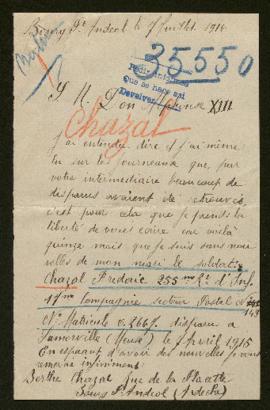 Bourg St Andeol le 7 Juillet 1916
35550
Pedir Antecedentes
Que se hace aqui
Devolver
S. M. Don Alphonse XIII
Chazal
J'ai entendu dire et j'ai même
lu sur les journeaux que, par
votre intermediaire beaucoup de
disparus avaient été retrouvés
c'est pour cela que je prends la
liberté de vous écrire car voilà
quinze mois que je suis sans nou
velles de mon mari le soldat
Chazal Frédéric 255me Rt d'Inf.
17me Compagnie secteur Postal No
143
No Matricule 5667 disparu a
Lamorville (Meuse) le 8 Avril 1915
En espérant d'avoir des nouvelles je vous
remercie infiniment
Berthe Chazal Rue de la
Bourg St Andeol (Ardèche)